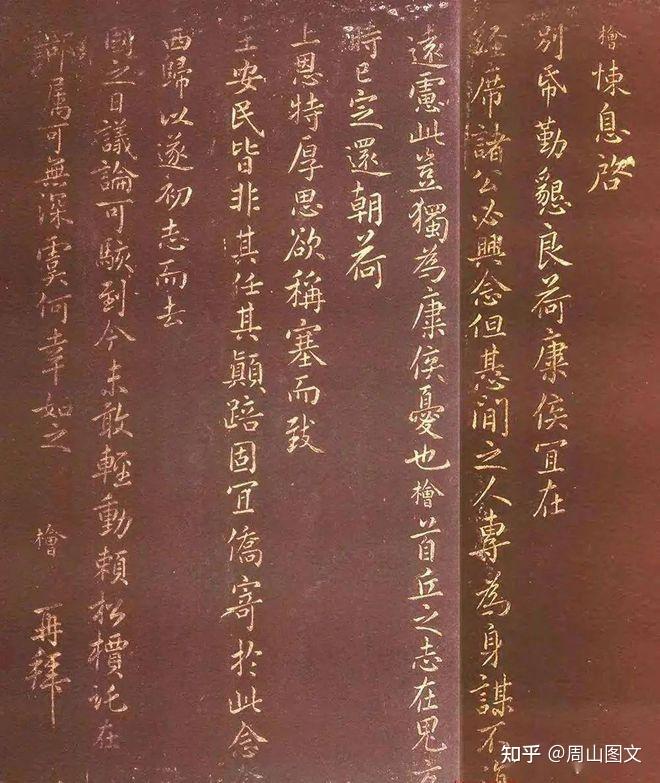 檜悚息啓
別帋勤懇良荷康侯宜在
經席諸公必興念但悬間之人專為身謀不
遠慮此豈獨為康侯憂也檜首丘之志在兕
時已定還朝荷
上恩特厚思欲稱塞而致
主安民皆非其任其顛踣固宜僑寄於此念
西歸以遂初志而去
國之日議論可駭到今未敢輕動賴松檟託在
鄰屬可無深虞何幸如之 檜 再拜
知乎 @周山图文